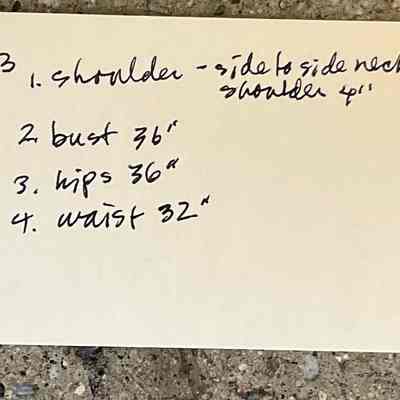 3
1. shoulder - side to side neck
shoulder 4"
2. bust 36"
3. hips 36"
4. waist 32"